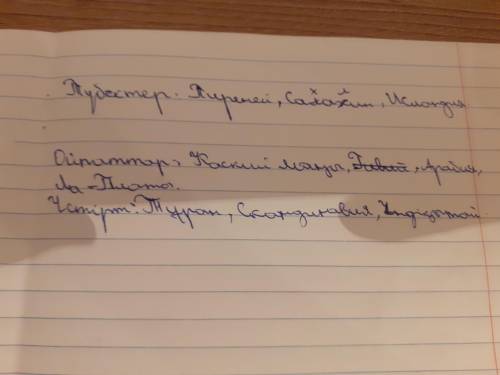 Түбектер: Пиреней, Сахалин, Исландия
Ойпаттар: Каспий маңы, Арабия,
Ла-Плата.
Үстірт: Тұран, Скандинавия, Үндіқытай.